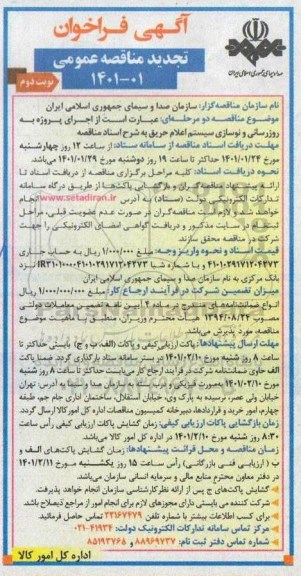 آگهی فراخوان
تجدید مناقصه عمومی
۱۴۰۱-۰۱
نوبت دوم
صدا و سیمای جمهوری اسلامی ایران
نام سازمان مناقصه‌گزار: سازمان صدا و سیمای جمهوری اسلامی ایران
موضوع مناقصه دو مرحله‌ای: عبارت است از اجرای پروژه به
روزرسانی و نوسازی سیستم اعلام حریق به شرح اسناد مناقصه
مهلت دریافت اسناد مناقصه از سامانه ستاد: از ساعت ۱۲ روز چهارشنبه
مورخ ۱۴۰۱/۰۱/۲۴ حداکثر تا ساعت ۱۹ روز دوشنبه مورخ ۱۴۰۱/۰۱/۲۹ می‌باشد.
نحوه دریافت اسناد: کلیه مراحل برگزاری مناقصه از دریافت اسناد تا
ارائه پیشنهاد مناقصه‌گران و بازگشایی پاکت‌ها از طریق درگاه سامانه
تدارکات الکترونیکی دولت (ستاد) به آدرس www.setadiran.ir انجام
خواهد شد و لازم است مناقصه‌گران در صورت عدم عضویت قبلی، مراحل
ثبت‌نام در سایت مذکور و دریافت گواهی امضای الکترونیکی را جهت
شرکت در مناقصه محقق سازند.
قیمت اسناد و نحوه واریز وجه: مبلغ ۱/۰۰۰/۰۰۰ ریال به حساب جاری
و یا شماره شبا
بانک مرکزی به نام سازمان صدا و سیمای جمهوری اسلامی ایران
میزان تضمین شرکت در فرآیند ارجاع کار: مبلغ ۱/۰۰۰/۰۰۰/۰۰۰ ریال
انواع ضمانتنامه‌های مندرج در ماده ۴ آیین نامه تضمین معاملات دولتی
مصوب ۱۳۹۴/۰۸/۲۴ هیأت محترم وزیران، منطبق با ماهیت موضوع
مناقصه، مورد پذیرش می‌باشد.
مهلت ارسال پیشنهادها: پاکت ارزیابی کیفی و پاکات (الف، ب و ج) بایستی حداکثر تا
ساعت ۸ روز شنبه مورخ ۱۴۰۱/۰۲/۱۰ در بستر سامانه ستاد بارگذاری گردد. ضمنا پاکت
الف حاوی ضمانتنامه شرکت در فرآیند ارجاع کار می‌بایست حداکثر تا ساعت ۸ روز شنبه
مورخ ۱۴۰۱/۰۲/۱۰ به‌صورت فیزیکی به سازمان صدا و سیما به آدرس: تهران
خیابان ولی عصر، نرسیده به پارک وی، خیابان استقلال، ساختمان اداری جام جم، طبقه
چهارم، امور خرید و قراردادها، دبیرخانه کمیسیون مناقصات اداره کل امور کالا ارسال گردد.
زمان بازگشایی پاکات ارزیابی کیفی: زمان گشایش پاکات ارزیابی کیفی رأس ساعت
۸:۳۰ روز شنبه مورخ ۱۴۰۱/۲/۱۰ در اداره کل امور کالا می‌باشد.
زمان مناقصه و محل قرائت پیشنهادها: زمان گشایش پاکت‌های الف و
ب (ارزیابی فنی بازرگانی) رأس ساعت ۱۵ روز یکشنبه مورخ ۱۴۰۱/۲/۱۱
در دفتر معاون محترم منابع مالی و سرمایه انسانی سازمان می‌باشد.
گشایش پاکت‌های ج پس از ارائه نظر کارشناسی سازمان انجام خواهد پذیرفت.
شرکت کننده می بایستی دارای مجوزهای لازم برای انجام امور از مراجع ذیصلاح باشد.
برای کسب اطلاعات بیشتر با شماره تلفن ۲۲۱۶۷۴۷۹ تماس حاصل فرمایید
مرکز تماس سامانه تدارکات الکترونیک دولت: ۴۱۹۳۴-۰۲۱
شماره تماس دفتر ثبت نام: ۸۸۹۶۹۷۳۷ و ۸۵۱۹۳۷۶۸
اداره کل امور کالا